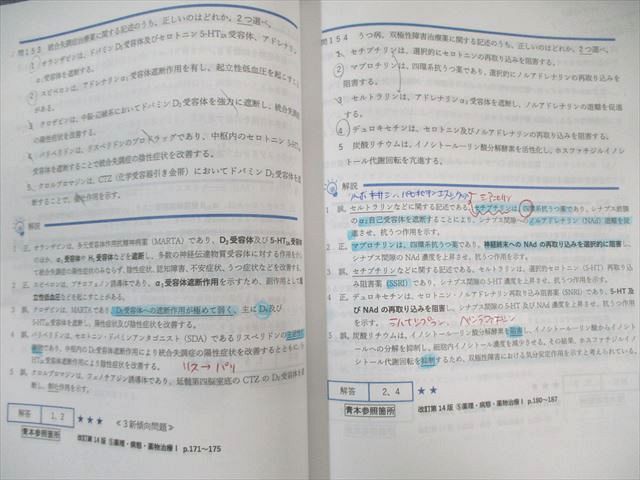 問153 統合失調症治療薬に関する記述のうち、正しいのはどれか。2つ選べ。
1 オランザピンは、ドパミンD₂受容体及びセロトニン5-HT₂A受容体、アドレナリン
α₁受容体を遮断する。
2 スピペロンは、アドレナリンα₁受容体遮断作用を有し、起立性低血圧を起こすこと
がある。
3 クロザピンは、中脳-辺縁系においてドパミンD₂受容体を強力に遮断し、統合失調症
の陽性症状を改善する。
4 パリペリドンは、リスペリドンのプロドラッグであり、中枢内のセロトニン5-HT₂A
受容体を遮断することで統合失調症の陰性症状を改善する。
5 クロルプロマジンは、CTZ（化学受容器引き金帯）においてドパミンD₂受容体を
遮断することで、催吐作用を示す。
解説
1 正。オランザピンは、多元受容体作用抗精神病薬（MARTA）であり、D₂受容体及び5-HT₂A受容体
のほか、α₁受容体やH₁受容体などを遮断し、多数の神経伝達物質受容体に対する作用を介し
て統合失調症の陽性症状のみならず、陰性症状、認知障害、不安症状、うつ症状などを改善する。
2 正。スピペロンは、ブチロフェノン誘導体であり、α₁受容体遮断作用を示すため、副作用として起
立性低血圧などを起こすことがある。
3 誤。クロザピンは、MARTAであり、D₂受容体への遮断作用が極めて弱く、主にD₄及び
5-HT₂A受容体を遮断し、陽性症状及び陰性症状を改善する。
4 誤。パリペリドンは、セロトニン・ドパミンアンタゴニスト（SDA）であるリスペリドンの主活性代
謝物であり、中枢内のD₂受容体遮断作用により統合失調症の陽性症状を改善するとともに、5-
HT₂A受容体遮断作用により陰性症状を改善する。
リス→パリ
5 誤。クロルプロマジンは、フェノチアジン誘導体であり、延髄第四脳室底のCTZのD₂受容体を遮
断し、制吐作用を示す。
解答 1、2 ★★★ 《3新傾向問題》
青本参照箇所 改訂第14版 ⑤薬理・病態・薬物治療Ⅰ p.171～175
問154 うつ病、双極性障害治療薬に関する記述のうち、正しいのはどれか。2つ選べ。
1 セチプチリンは、選択的にセロトニンの再取り込みを阻害する。
2 マプロチリンは、四環系抗うつ薬であり、選択的にノルアドレナリンの再取り込みを
阻害する。
3 セルトラリンは、アドレナリンα₂受容体を遮断し、ノルアドレナリンの遊離を促進
する。
4 デュロキセチンは、セロトニン及びノルアドレナリンの再取り込みを阻害する。
5 炭酸リチウムは、イノシトール-リン酸分解酵素を活性化し、ホスファチジルイノシ
トール代謝回転を亢進する。
解説
1 誤。セルトラリンなどに関する記述である。セチプチリンは、四環系抗うつ薬であり、シナプス前膜
のα₂自己受容体を遮断することにより、シナプス間隙へのノルアドレナリン（NAd）遊離を促
進させ、抗うつ作用を示す。
2 正。マプロチリンは、四環系抗うつ薬であり、神経終末へのNAdの再取り込みを選択的に阻害し、
シナプス間隙のNAd濃度を上昇させ、抗うつ作用を示す。
3 誤。セチプチリンなどに関する記述である。セルトラリンは、選択的セロトニン（5-HT）再取り込
み阻害薬（SSRI）であり、シナプス間隙の5-HT濃度を上昇させ、抗うつ作用を示す。
4 正。デュロキセチンは、セロトニン・ノルアドレナリン再取り込み阻害薬（SNRI）であり、5-HT及
びNAdの再取り込みを阻害し、シナプス間隙の5-HT及びNAd濃度を上昇させ、抗うつ作用
を示す。
5 誤。炭酸リチウムは、イノシトールリン酸分解酵素を阻害し、イノシトールリン酸からイノシトー
ルへの分解を抑制し、細胞内イノシトール濃度を減少させる。その結果、ホスファチジルイノシ
トール代謝回転を抑制するため、双極性障害における気分安定作用を示すと考えられている。
解答 2、4 ★★
青本参照箇所 改訂第14版 ⑤薬理・病態・薬物治療Ⅰ p.180～187